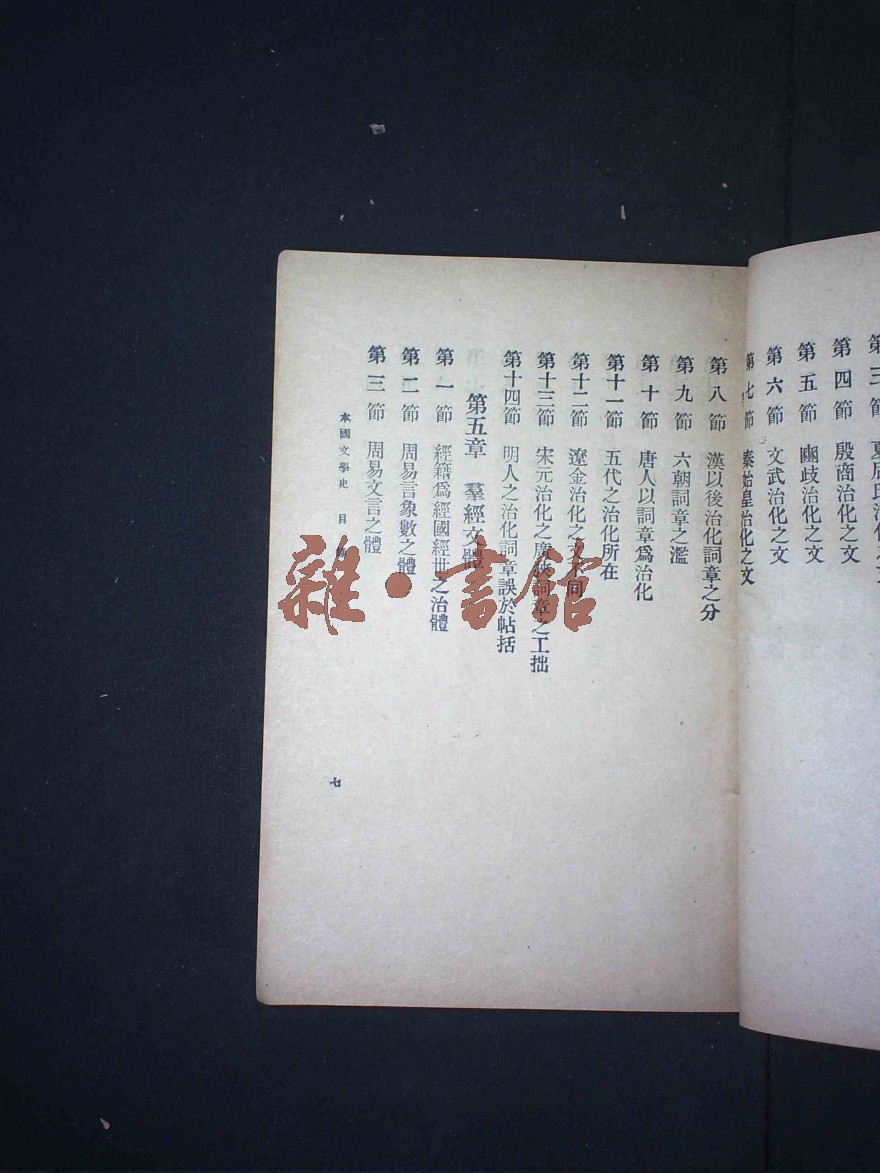 第三節 夏
第四節 殷商治化之文
第五節 豳歧治化之文
第六節 文武治化之文
第七節 秦始皇治化之文
第八節 漢以後治化詞章之分
第九節 六朝詞章之濫
第十節 唐人以詞章爲治化
第十一節 五代之治化所在
第十二節 遼金治化之文不同
第十三節 宋元治化之廣狹詞章之工拙
第十四節 明人之治化詞章誤於帖括
第五章 羣經文體
第一節 經籍爲經國經世之治體
第二節 周易言象數之體
第三節 周易文言之體
本國文學史 目
七
雜·書館